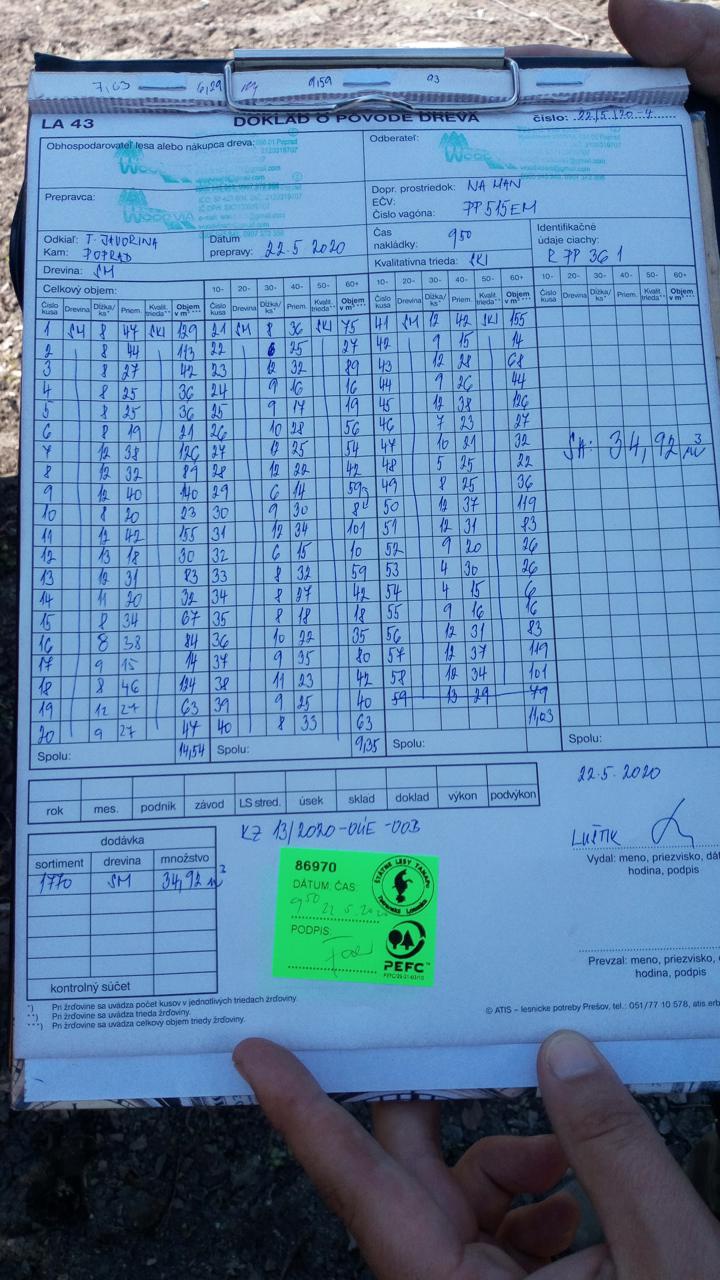 7,63 6,29 9,59 93
LA 43 DOKLAD O PÔVODE DREVA číslo: 22/5/20-4
Obhospodarovateľ lesa alebo nákupca dreva: Odberateľ:
WOODVIA
Prepravca: Dopr. prostriedok: NA MAN
EČV:
Číslo vagóna: PP515EM
Odkiaľ: T. JAVORINA Dátum Čas Identifikačné
Kam: POPRAD prepravy: 22.5 2020 nakládky: 9 50 údaje ciachy: R PP 36 1
Drevina: SM Kvalitatívna trieda: SKI
Celkový objem: 10- 20- 30- 40- 50- 60+ 10- 20- 30- 40- 50- 60+ 10- 20- 30- 40- 50- 60+
Číslo kusa Drevina Dĺžka/ ks* Priem. Kvalit. trieda** Objem v m³ *** Číslo kusa Drevina Dĺžka/ ks* Priem. Kvalit. trieda** Objem v m³ *** Číslo kusa Drevina Dĺžka/ ks* Priem. Kvalit. trieda** Objem v m³ *** Číslo kusa Drevina Dĺžka/ ks* Priem. Kvalit. trieda** Objem v m³ ***
1 SM 8 47 SKI 129 21 SM 8 36 SKI 75 41 SM 12 42 SKI 155
2 8 44 113 22 6 25 27 42 9 15 14
3 8 27 42 23 12 32 89 43 12 28 68
4 8 25 36 24 9 16 16 44 9 26 44
5 8 25 36 25 9 17 19 45 12 38 126
6 8 19 21 26 10 28 56 46 7 23 27
7 12 38 126 27 12 25 54 47 10 21 32
SM: 34,92 m³
8 12 32 89 28 12 22 42 48 5 25 22
9 12 40 140 29 6 14 49 8 25 36
10 8 20 23 30 9 30 50 12 37 119
11 12 42 155 31 12 34 101 51 12 31 83
12 13 18 30 32 6 15 10 52 9 20 26
13 12 31 83 33 8 32 59 53 4 30 26
14 11 20 32 34 8 27 42 54 4 15 6
15 8 34 67 35 8 18 18 55 9 16 16
16 8 38 84 36 10 22 35 56 12 31 83
17 9 15 14 37 9 35 80 57 12 37 119
18 8 46 124 38 11 23 42 58 12 34 101
19 12 27 63 39 9 25 40 59 13 29 79
20 9 27 47 40 8 33 63 11,03
Spolu: 14,54 Spolu: 9,35 Spolu: Spolu:
22.5.2020
rok mes. podnik závod LS stred. úsek sklad doklad výkon podvýkon
KZ 13/2020-OÚE-OOB
LUŠTIK
Vydal: meno, priezvisko,
hodina, podpis
dodávka
sortiment drevina množstvo
1770 SM 34,92 m³
kontrolný súčet
86970
DÁTUM, ČAS:
9 50 22 5.2020
PODPIS:
ŠTÁTNE LESY TANAPU
PEFC
Prevzal: meno, priezvisko,
hodina, podpis
*) Pri žrďovine sa uvádza počet kusov v jednotlivých triedach žrďoviny.
**) Pri žrďovine sa uvádza trieda žrďoviny.
***) Pri žrďovine sa uvádza celkový objem triedy žrďoviny.
© ATIS – lesnícke potreby Prešov, tel.: 051/77 10 578,